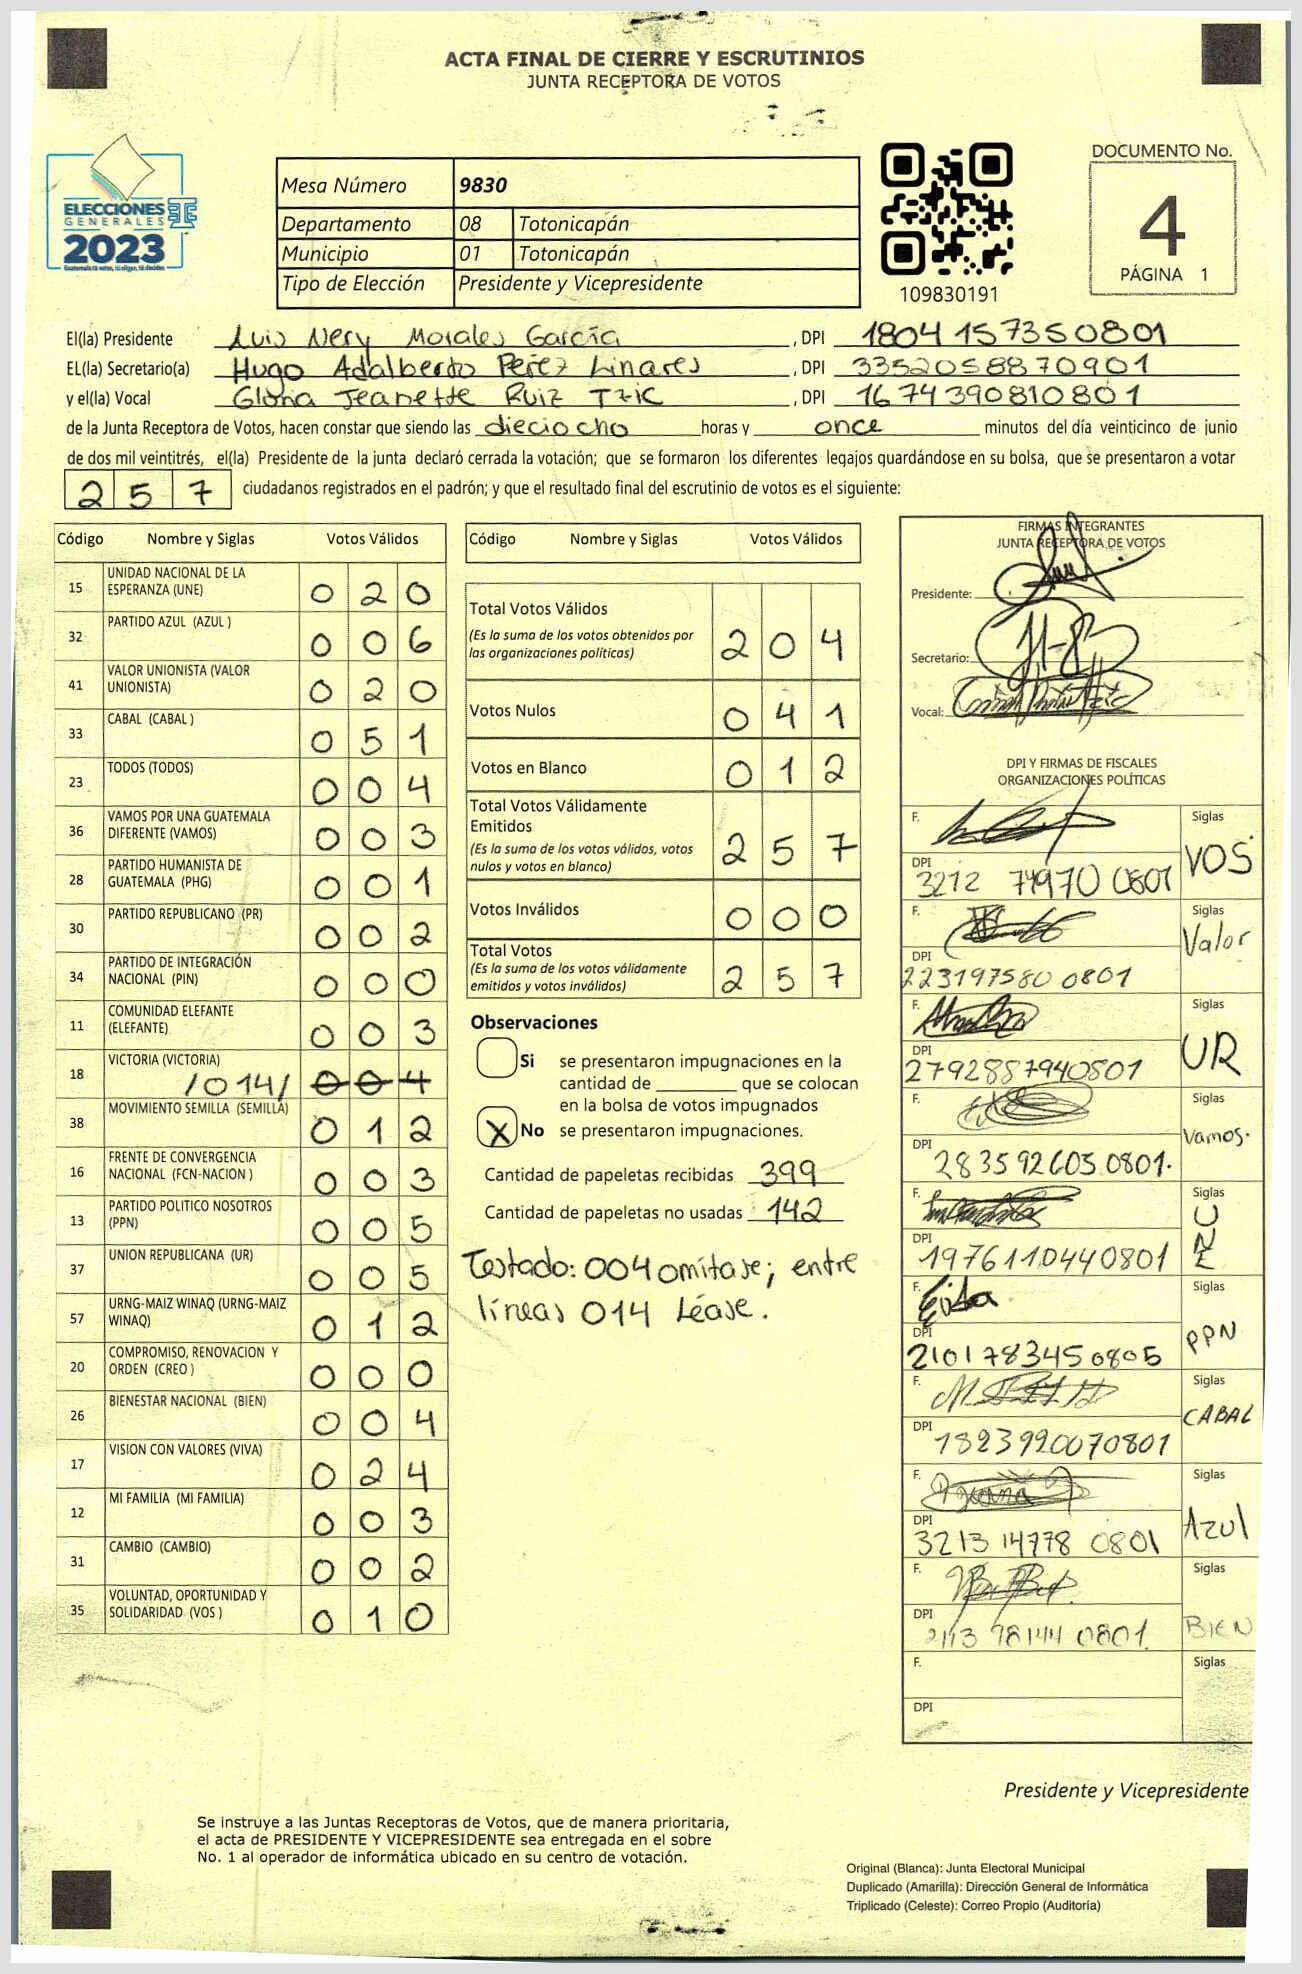 ACTA FINAL DE CIERRE Y ESCRUTINIOS
JUNTA RECEPTORA DE VOTOS
ELECCIONES
GENERALES
2023
Mesa Número 9830
Departamento 08 Totonicapán
Municipio 01 Totonicapán
Tipo de Elección Presidente y Vicepresidente
109830191
DOCUMENTO No.
4
PÁGINA 1
El(la) Presidente Luis Nery Morales García, DPI 1804157350801
EL(la) Secretario(a) Hugo Adalberto Pérez Linares, DPI 3352058870901
y el(la) Vocal Gloria Jeanette Ruiz Tzic, DPI 1674390810801
de la Junta Receptora de Votos, hacen constar que siendo las dieciocho horas y once minutos del día veinticinco de junio
de dos mil veintitrés, el(la) Presidente de la junta declaró cerrada la votación; que se formaron los diferentes legajos guardándose en su bolsa, que se presentaron a votar
257 ciudadanos registrados en el padrón; y que el resultado final del escrutinio de votos es el siguiente:
Código Nombre y Siglas Votos Válidos
15 UNIDAD NACIONAL DE LA ESPERANZA (UNE) 020
32 PARTIDO AZUL (AZUL ) 006
41 VALOR UNIONISTA (VALOR UNIONISTA) 020
33 CABAL (CABAL ) 051
23 TODOS (TODOS) 004
36 VAMOS POR UNA GUATEMALA DIFERENTE (VAMOS) 003
28 PARTIDO HUMANISTA DE GUATEMALA (PHG) 001
30 PARTIDO REPUBLICANO (PR) 002
34 PARTIDO DE INTEGRACIÓN NACIONAL (PIN) 000
11 COMUNIDAD ELEFANTE (ELEFANTE) 003
18 VICTORIA (VICTORIA) /014/ 004
38 MOVIMIENTO SEMILLA (SEMILLA) 012
16 FRENTE DE CONVERGENCIA NACIONAL (FCN-NACION ) 003
13 PARTIDO POLITICO NOSOTROS (PPN) 005
37 UNION REPUBLICANA (UR) 005
57 URNG-MAIZ WINAQ (URNG-MAIZ WINAQ) 012
20 COMPROMISO, RENOVACION Y ORDEN (CREO ) 000
26 BIENESTAR NACIONAL (BIEN) 004
17 VISION CON VALORES (VIVA) 024
12 MI FAMILIA (MI FAMILIA) 003
31 CAMBIO (CAMBIO) 002
35 VOLUNTAD, OPORTUNIDAD Y SOLIDARIDAD (VOS ) 010
Código Nombre y Siglas Votos Válidos
Total Votos Válidos 204
(Es la suma de los votos obtenidos por
las organizaciones políticas)
Votos Nulos 041
Votos en Blanco 012
Total Votos Válidamente
Emitidos 257
(Es la suma de los votos válidos, votos
nulos y votos en blanco)
Votos Inválidos 000
Total Votos 257
(Es la suma de los votos válidamente
emitidos y votos inválidos)
Observaciones
Si se presentaron impugnaciones en la
cantidad de ________ que se colocan
en la bolsa de votos impugnados
X No se presentaron impugnaciones.
Cantidad de papeletas recibidas 399
Cantidad de papeletas no usadas 142
Testado: 004 omitase; entre
líneas 014 Léase.
FIRMAS INTEGRANTES
JUNTA RECEPTORA DE VOTOS
Presidente:
Secretario:
Vocal:
DPI Y FIRMAS DE FISCALES
ORGANIZACIONES POLÍTICAS
F. Siglas VOS
DPI 3212 74970 0801
F. Siglas Valor
DPI 223197580 0801
F. Siglas UR
DPI 2792887940801
F. Siglas Vamos.
DPI 283592605 0801.
F. Siglas UNE
DPI 1976110440801
F. Siglas PPN
DPI 2101783450805
F. Siglas CABAL
DPI 1823920070801
F. Siglas Azul
DPI 3213 14778 0801
F. Siglas BIEN
DPI 2113 98144 0801
F. Siglas
DPI
Presidente y Vicepresidente
Se instruye a las Juntas Receptoras de Votos, que de manera prioritaria,
el acta de PRESIDENTE Y VICEPRESIDENTE sea entregada en el sobre
No. 1 al operador de informática ubicado en su centro de votación.
Original (Blanca): Junta Electoral Municipal
Duplicado (Amarilla): Dirección General de Informática
Triplicado (Celeste): Correo Propio (Auditoría)